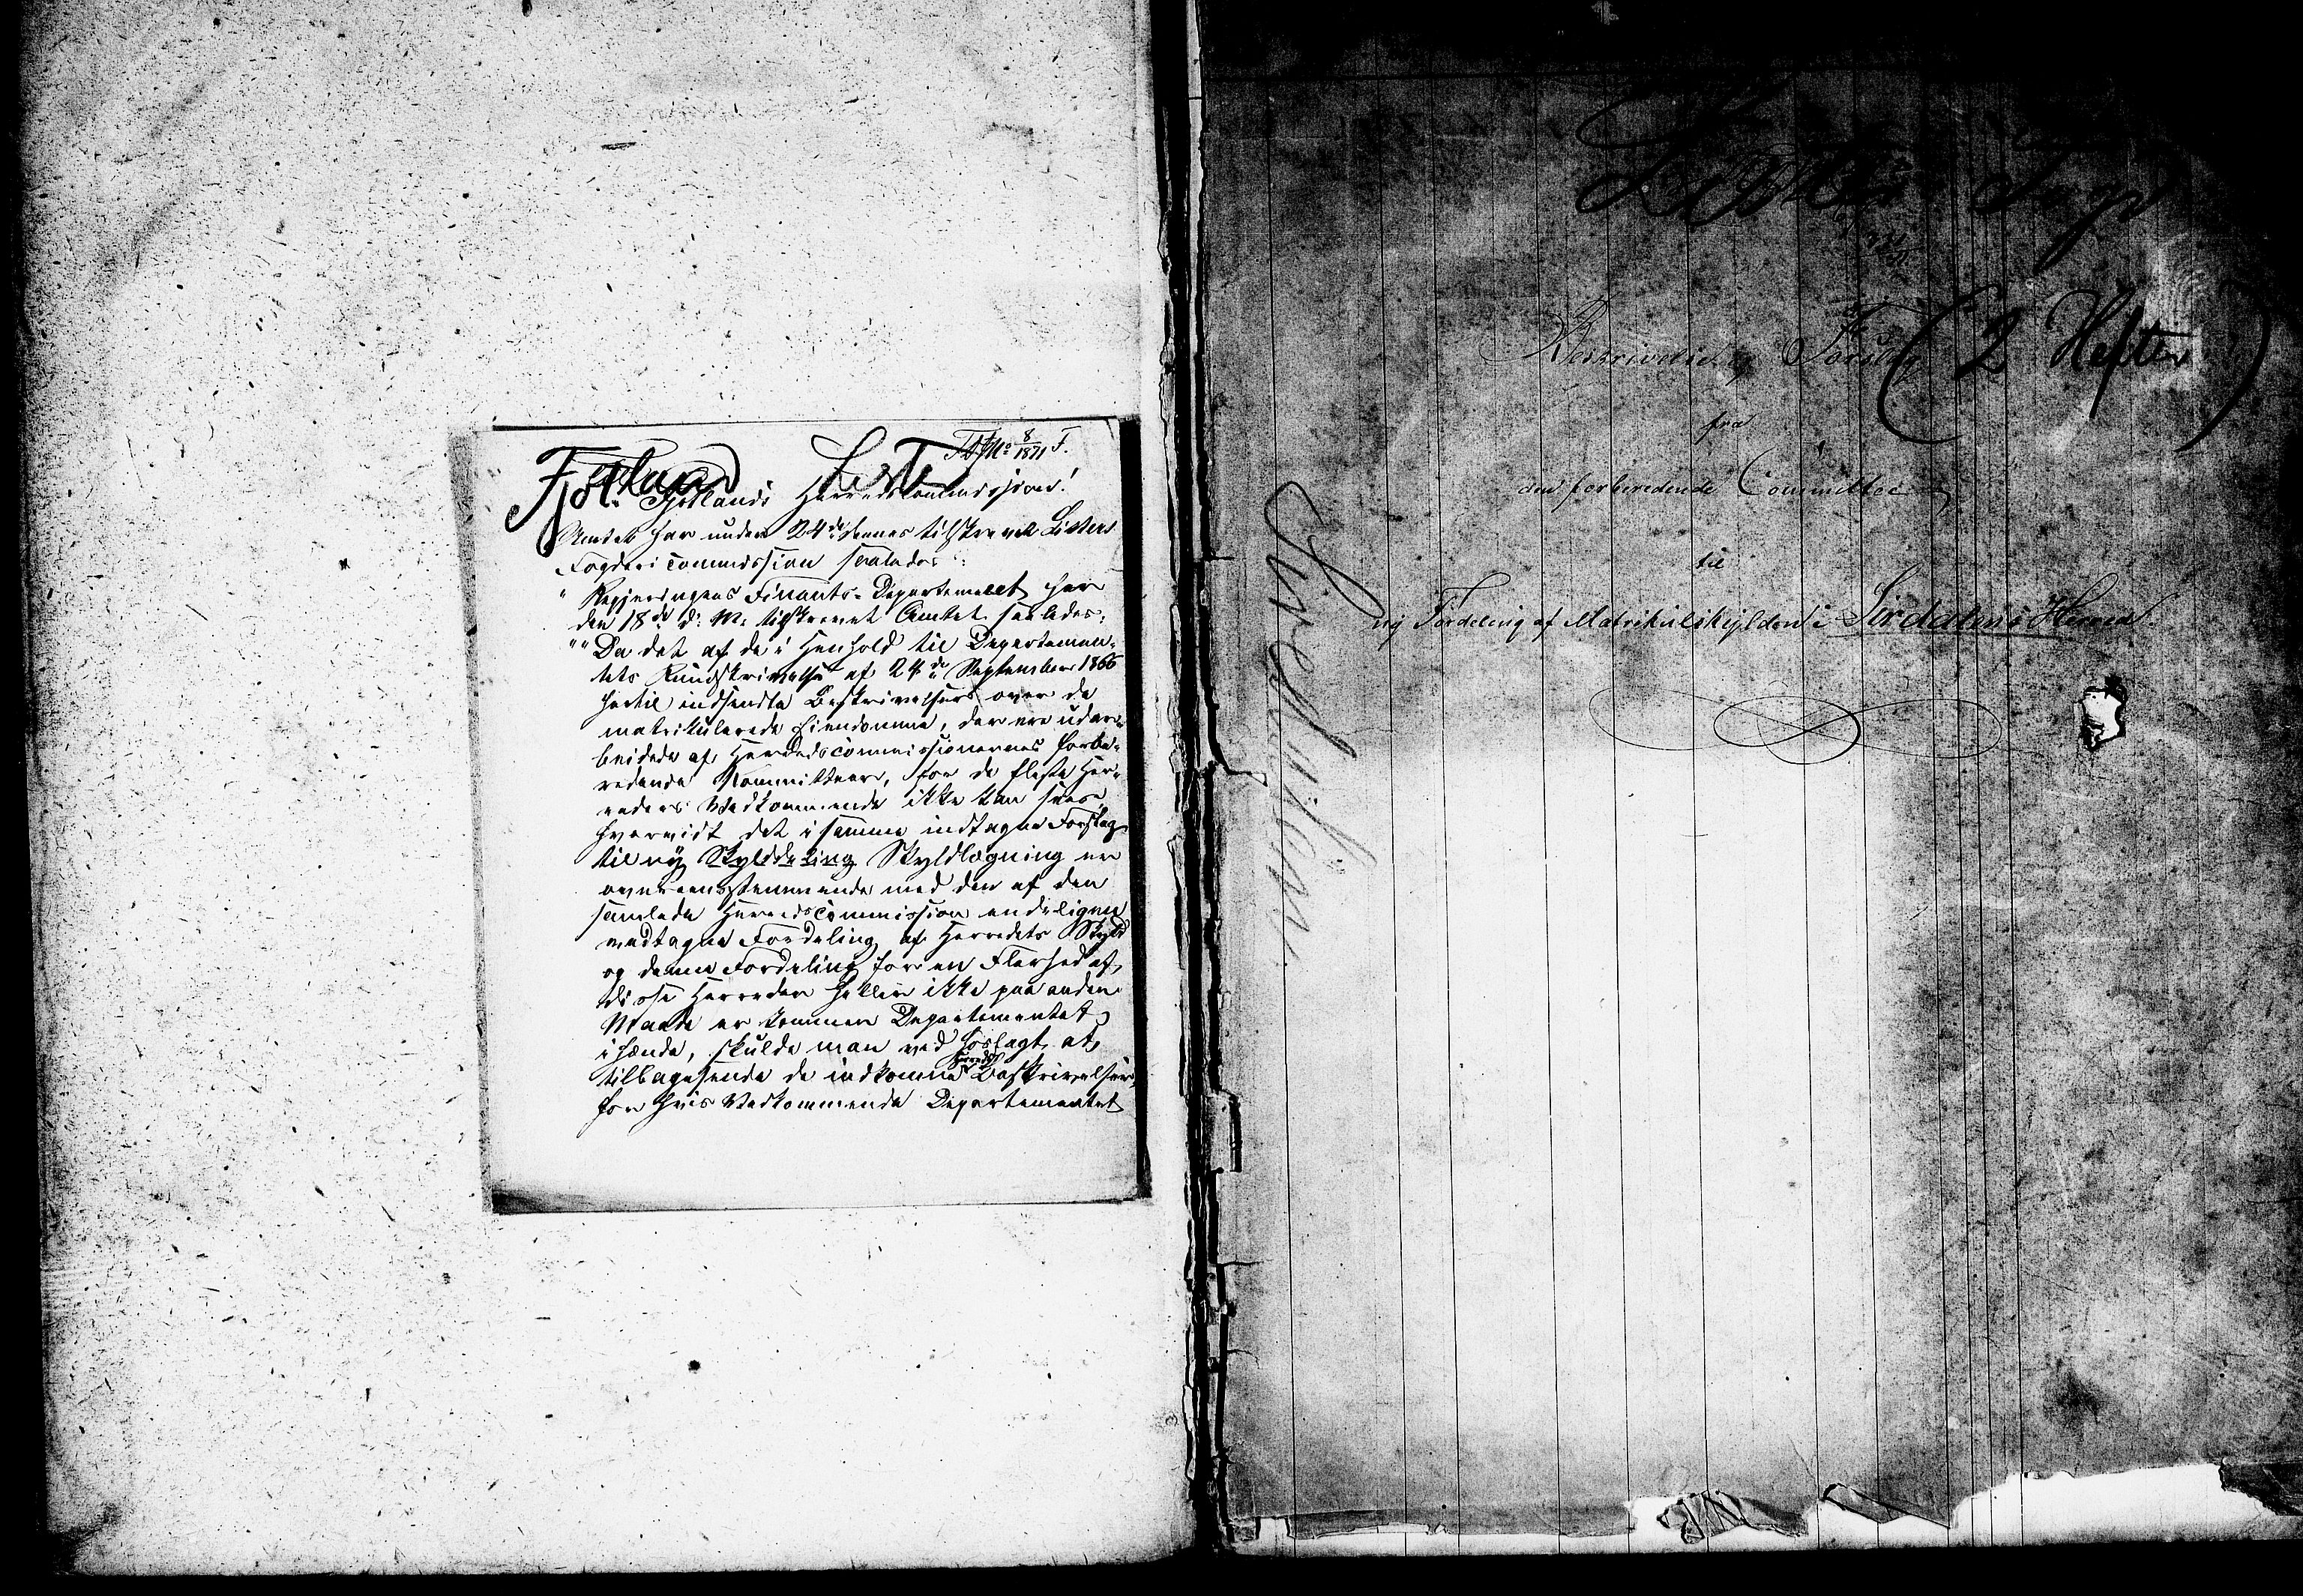 8/1871 F.
Fjotland Lister
Til Fjotlands Herredscommission!
Amtet har under 24de dennes tilskrevet Listers
Fogdericommission saaledes:
" Regjeringens Finants-Departement har
den 18de d. M. tilskrevet Amtet saaledes:
"" Da det af de i Henhold til Departemen-
tets Rundskrivelse af 24de September 1866
hertil indsendte Beskrivelser over de
matrikulerede Eiendomme, der ere udar-
beidede af Herredscommissionernes forbe-
redende Kommitteer, for de fleste Her-
reders Vedkommende ikke kan sees,
hvorvidt det i samme indtagne Forslag
til ny Skylddeling Skyldlægning er
overeensstemmende med den af den
samlede Herredscommission endeligen
vedtagne Fordeling af Herredets Skyld
og denne Fordeling for en Fleerhed af
disse Herreder heller ikke paa anden
Maade er kommen Departementet
ihænde, skulde man ved Hoslagt at
tilbagesende de indkomne Beskrivelser,
for hvis Vedkommende Departementet
Lister Fogd
Beskrivelse og Forslag
(2 Hefter)
fra
den forberedende Committee
til
ny Fordeling af Matrikulskylden i Sirdalens Herred.